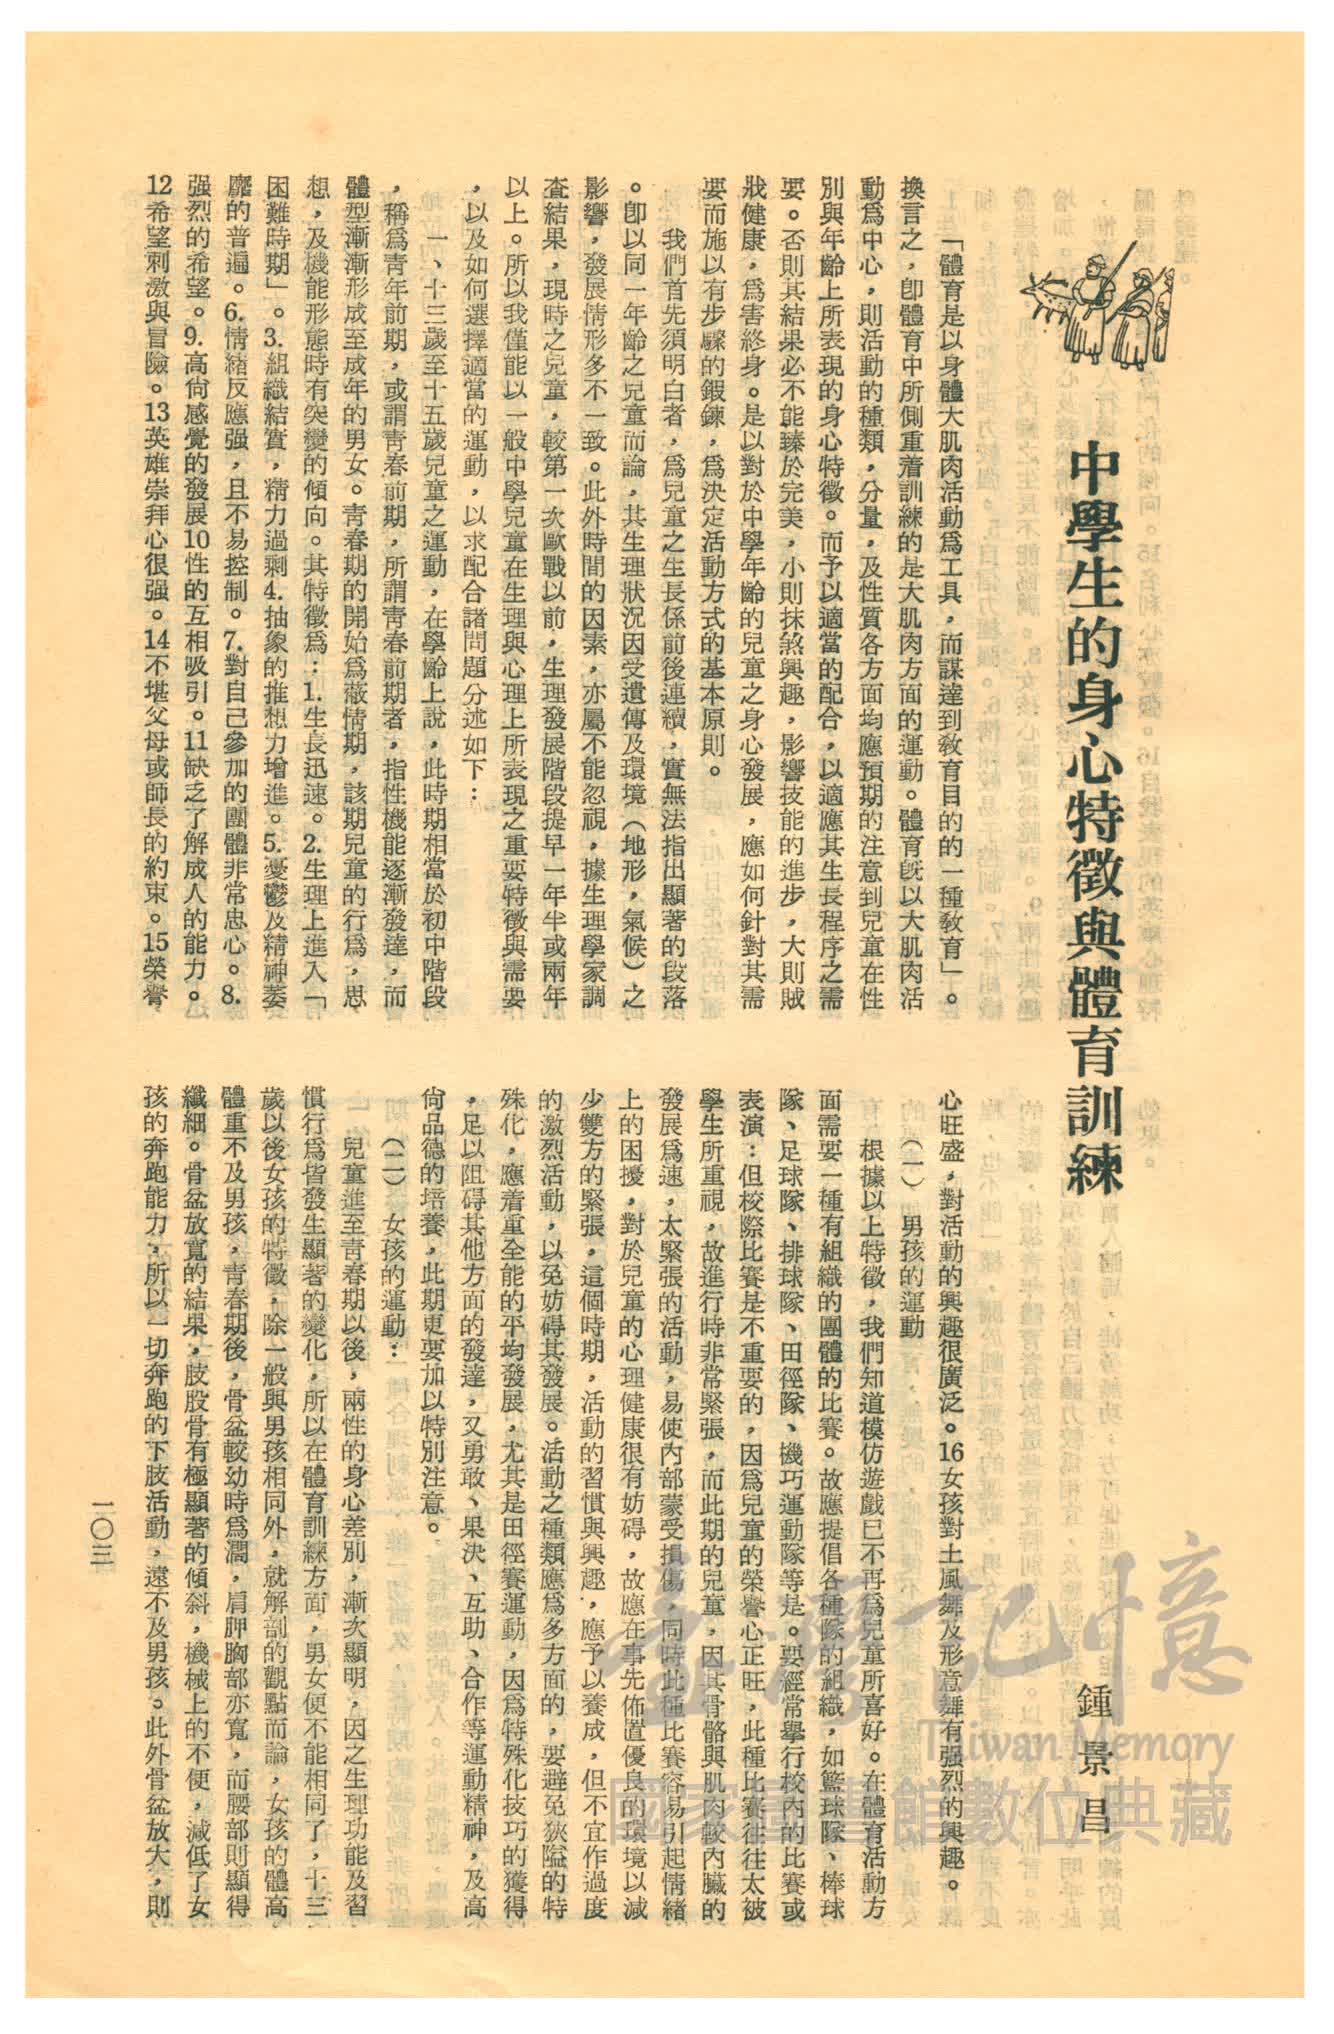 中學生的身心特徵與體育訓練
鍾景昌
「體育是以身體大肌肉活動爲工具，而謀達到敎育目的的一種敎育」。
換言之，卽體育中所側重着訓練的是大肌肉方面的運動。體育旣以大肌肉活
動爲中心，則活動的種類，分量，及性質各方面均應預期的注意到兒童在性
別與年齡上所表現的身心特徵。而予以適當的配合，以適應其生長程序之需
要。否則其結果必不能臻於完美，小則抹煞興趣，影響技能的進步，大則賊
戕健康，爲害終身。是以對於中學年齡的兒童之身心發展，應如何針對其需
要而施以有步驟的鍜鍊，爲決定活動方式的基本原則。
我們首先須明白者，爲兒童之生長係前後連續，實無法指出顯著的段落
。卽以同一年齡之兒童而論，其生理狀況因受遺傳及環境（地形，氣候）之
影響，發展情形多不一致。此外時間的因素，亦屬不能忽視，據生理學家調
查結果，現時之兒童，較第一次歐戰以前，生理發展階段提早一年半或兩年
以上。所以我僅能以一般中學兒童在生理與心理上所表現之重要特徵與需要
，以及如何選擇適當的運動，以求配合諸問題分述如下：
一、十三歲至十五歲兒童之運動，在學齡上說，此時期相當於初中階段
，稱爲靑年前期，或謂靑春前期，所謂靑春前期者，指性機能逐漸發達，而
體型漸漸形成至成年的男女。靑春期的開始爲蔽情期，該期兒童的行爲，思
想，及機能形態時有突變的傾向。其特徵爲：1.生長迅速。2.生理上進入「
困難時期」。3.組織結實，精力過剩4.抽象的推想力增進。5.憂鬱及精神萎
靡的普遍。6.情緒反應强，且不易控制。7.對自己參加的團體非常忠心。8.
强烈的希望。9.高尙感覺的發展10性的互相吸引。11缺乏了解成人的能力。
12希望刺激與冒險。13英雄崇拜心很强。14不堪父母或師長的約束。15榮譽
心旺盛，對活動的興趣很廣泛。16女孩對土風舞及形意舞有强烈的興趣。
（一）　男孩的運動
根據以上特徵，我們知道模仿遊戲已不再爲兒童所喜好。在體育活動方
面需要一種有組織的團體的比賽。故應提倡各種隊的組織，如籃球隊、棒球
隊、足球隊、排球隊、田徑隊、機巧運動隊等是。要經常擧行校內的比賽或
表演：但校際比賽是不重要的，因爲兒童的榮譽心正旺，此種比賽往往太被
學生所重視，故進行時非常緊張，而此期的兒童，因其骨骼與肌肉較內臟的
發展爲速，太緊張的活動，易使內部蒙受損傷，同時此種比賽容易引起情緒
上的困擾，對於兒童的心理健康很有妨碍，故應在事先佈置優良的環境以減
少雙方的緊張，這個時期，活動的習慣與興趣，應予以養成，但不宜作過度
的激烈活動，以免妨碍其發展。活動之種類應爲多方面的，要避免狹隘的特
殊化，應着重全能的平均發展，尤其是田徑賽運動，因爲特殊化技巧的獲得
，足以阻碍其他方面的發達，又勇敢、果決、互助、合作等運動精神，及高
尙品德的培養，此期更要加以特別注意。
（二）　女孩的運動：
兒童進至靑春期以後，兩性的身心差別，漸次顯明，因之生理功能及習
慣行爲皆發生顯著的變化，所以在體育訓練方面，男女便不能相同了，十三
歲以後女孩的特徵，除一般與男孩相同外，就解剖的觀點而論，女孩的體高
體重不及男孩，靑春期後，骨盆較幼時爲濶，肩胛胸部亦寬，而腰部則顯得
纖細。骨盆放寬的結果，肢股骨有極顯著的傾斜，機械上的不便，減低了女
孩的奔跑能力，所以一切奔跑的下肢活動，遠不及男孩。此外骨盆放大，則
一〇三
臺灣記憶
Taiwan Memory
國家圖書館數位典藏